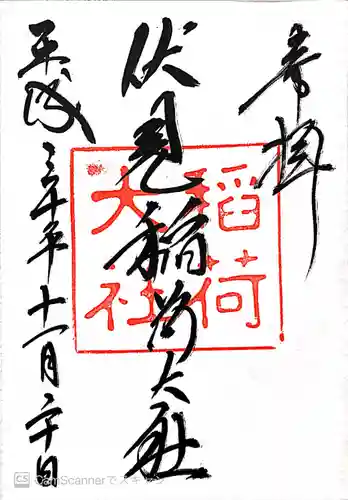 奉拝
伏見稲荷大社
稲荷
大社
平成三十年十一月二十日
CS CamScannerでスキャン